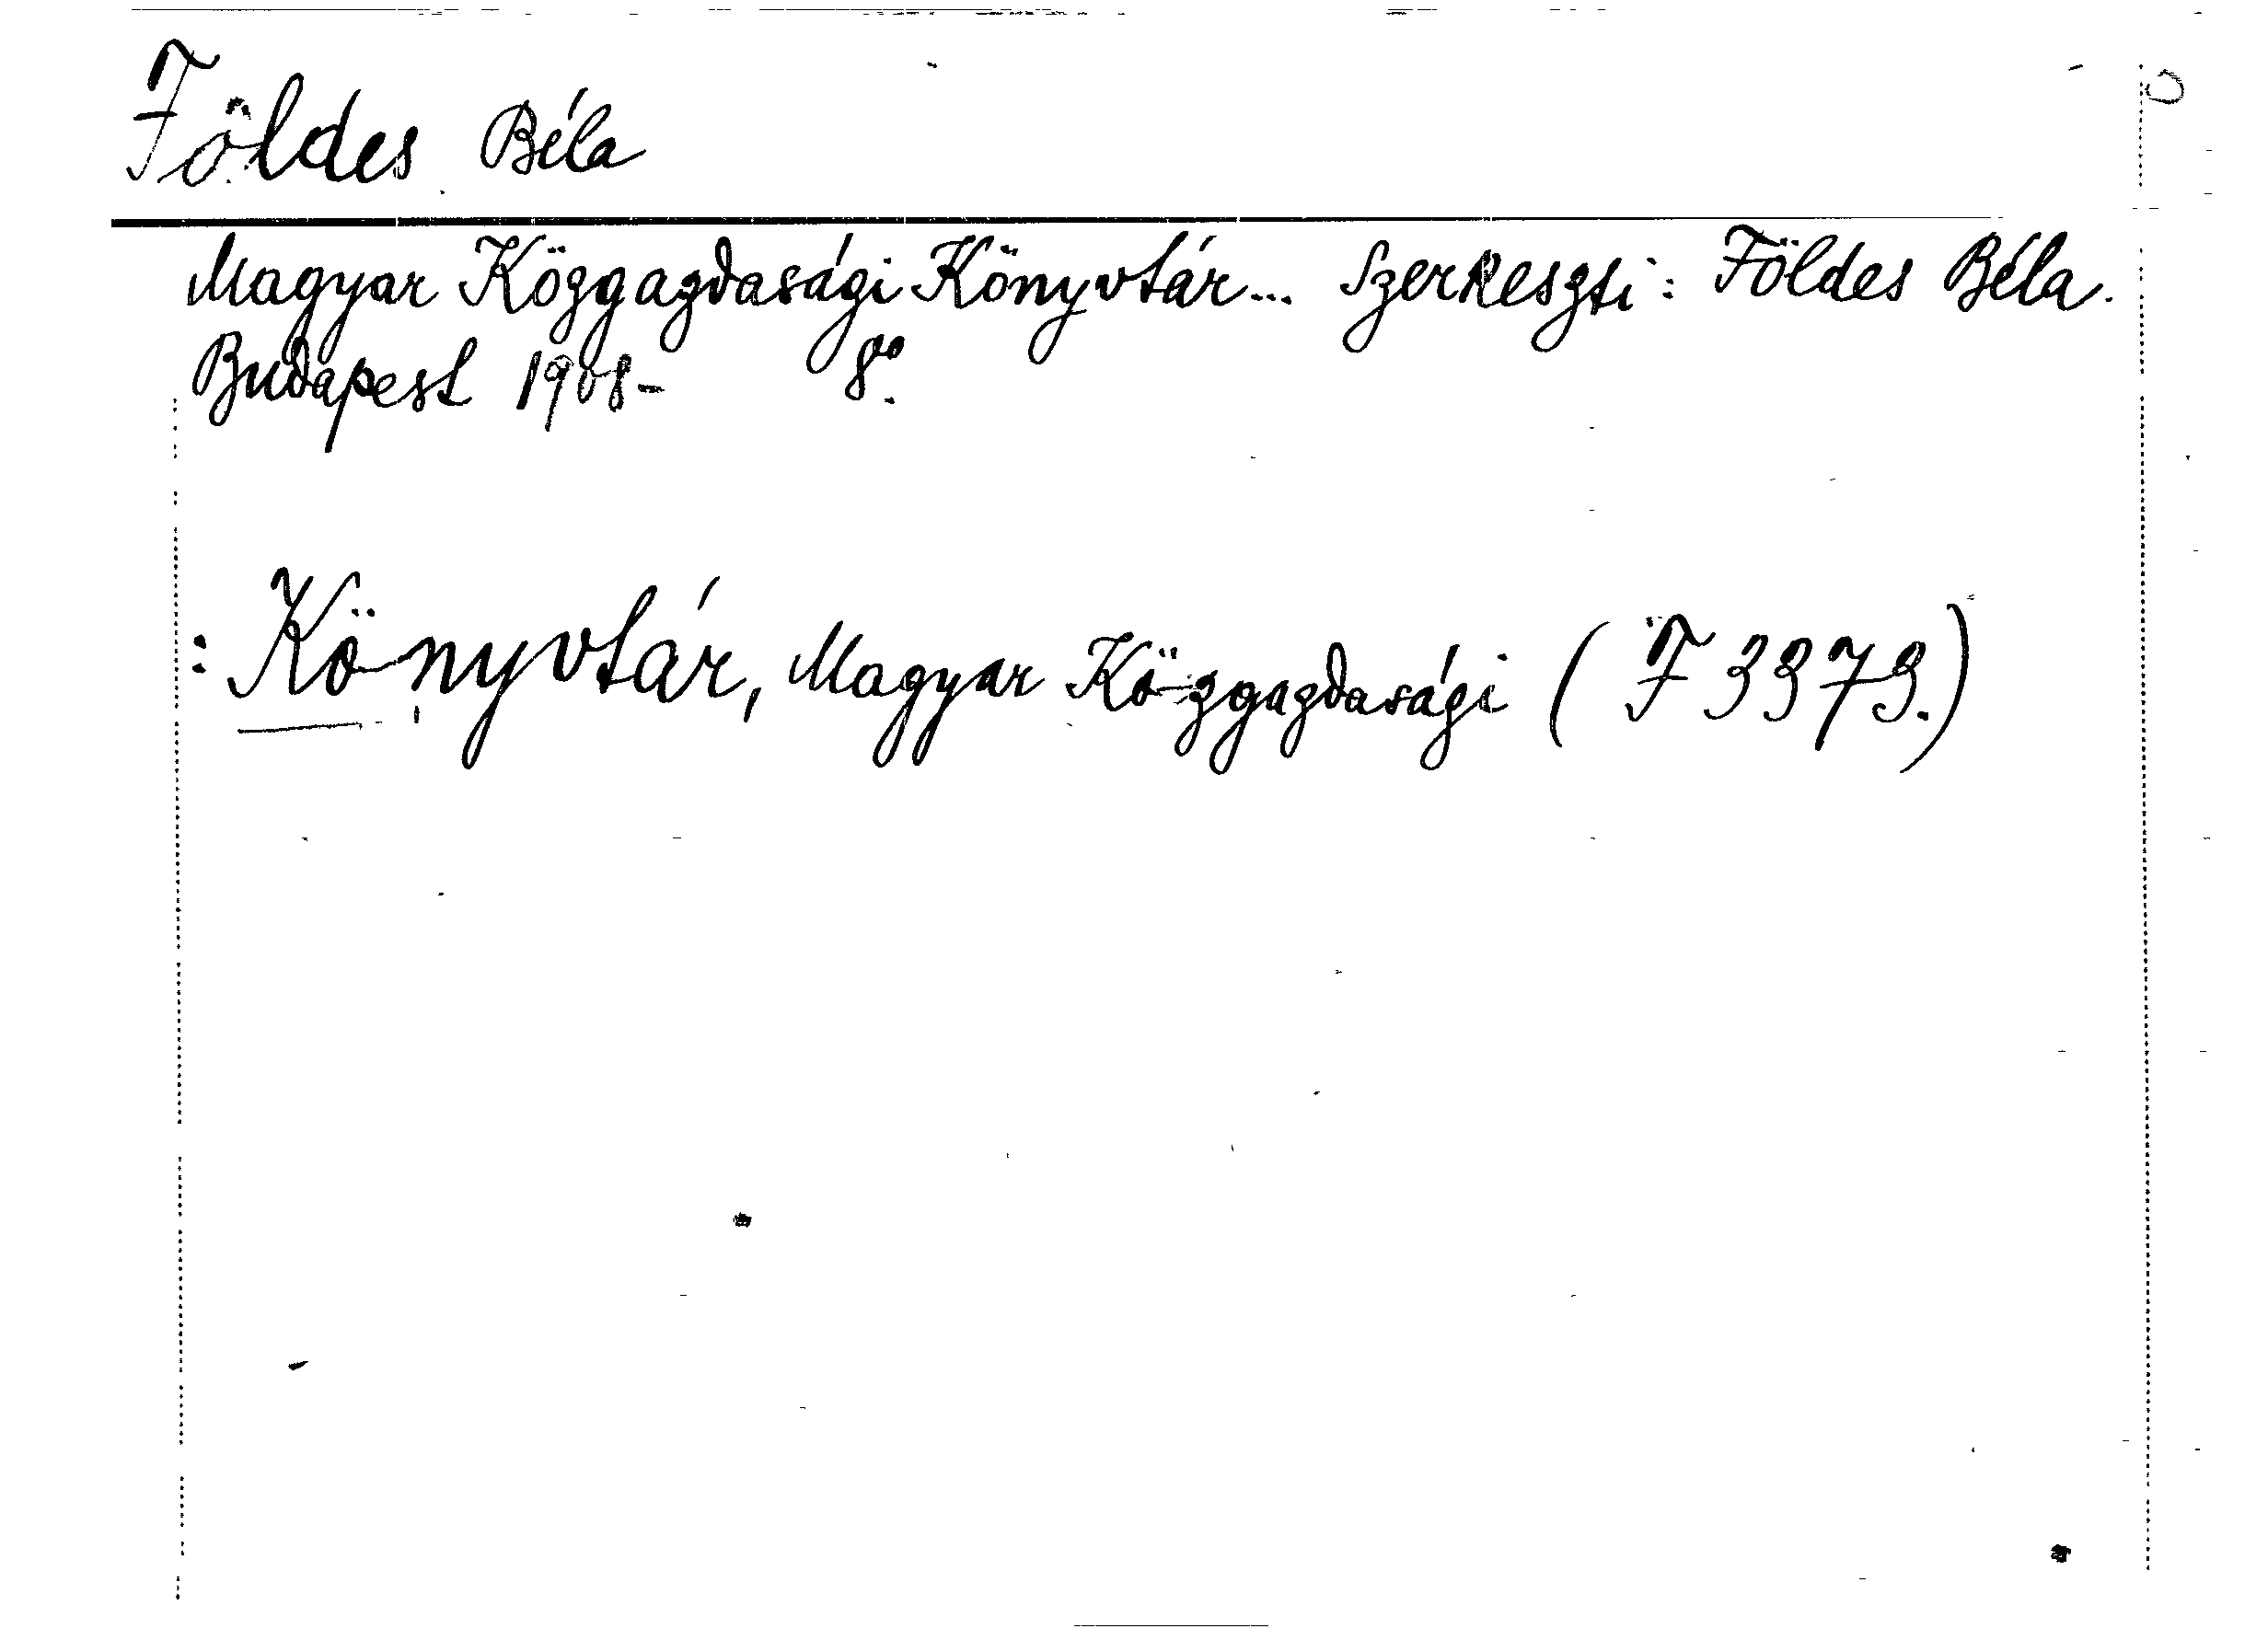 Földes Béla
Magyar Közgazdasági Könyvtár... Szerkeszti: Földes Béla.
Budapest 1908- 8°.
: Könyvtár, Magyar Közgazdasági (F 3373.)